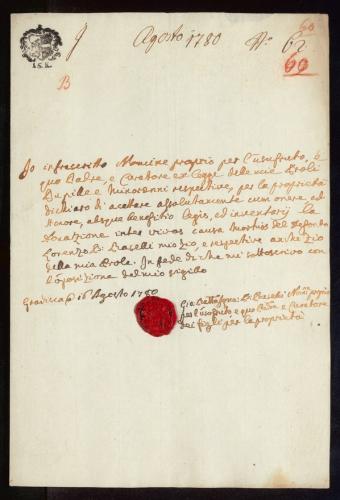 I S K
Agosto 1780
No: 62
60
60
B
Io infrascritto Nomine proprio per l'usufruto, e
quo Padre e Curatore ex Legge delle mie Proli
Pupille e Minorenni respective, per la proprietà
dichiaro d'acetare absolutamente cum onere ed
Honore, absque benefitio Legis, ed inventarij la
Donazione inter vivos causa Mortis del defonto
Lorenzo mio zio, e respective avite zio
della mia Prole. In fede di che mi sottoscrivo con
l'oposizione del mio sigillo
Gradisca 16 Agosto 1780
Gio Batta proprio
per l'usufruto e quo Padre e Curatore
dei figli per la proprietà